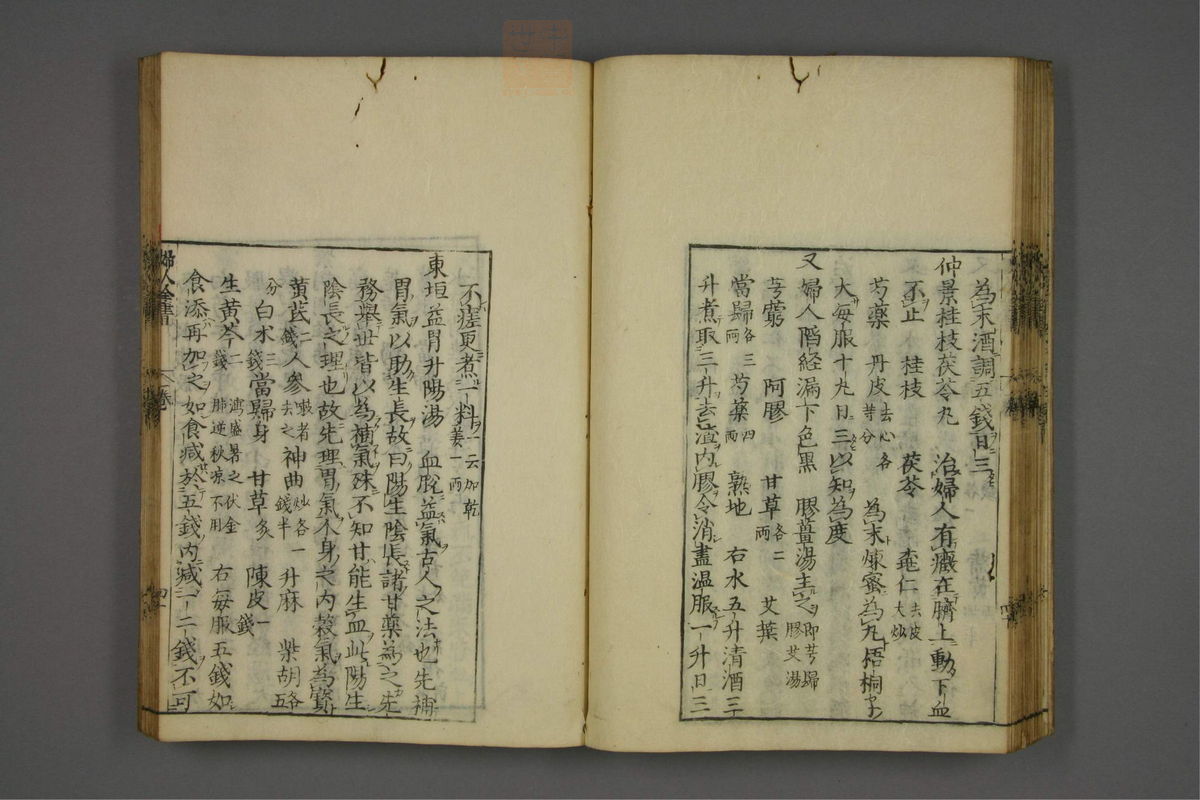 為末酒調五錢日三
仲景桂枝茯苓丸 治婦人有癥在臍上動下血
不止 桂枝 茯苓 桃仁去皮大炒
芍藥 丹皮去心各等分 為末煉蜜為丸梧桐子
大每服十九日三以知為度
又婦人陷経漏下色黒 膠薑湯主之即芎歸膠艾湯
芎藭 阿膠 甘草各二両 艾葉
當歸各三両 芍藥四両 熟地 右水五升清酒三
升煮取三升去渣內膠令消盡温服一升日三
不瘥更煮一料一云加乾姜一両
東垣益胃升陽湯 血脫益氣古人之法也先補
胃氣以助生長故曰陽生陰長諸甘藥為之先
務舉世皆以為補氣殊不知甘能生血此陽生
陰長之理也故先理胃氣人身之內穀氣為寶
黄芪二錢 人參嗽者去之 神曲炒各一錢半 升麻 柴胡各五
分 白水三錢 當歸身 甘草炙 陳皮一錢
生黄芩二錢 瀉盛暑之伏金肺逆秋凉不用 右毎服五錢如
食添再加之如食减於五錢內减一二錢不可
婦人全書